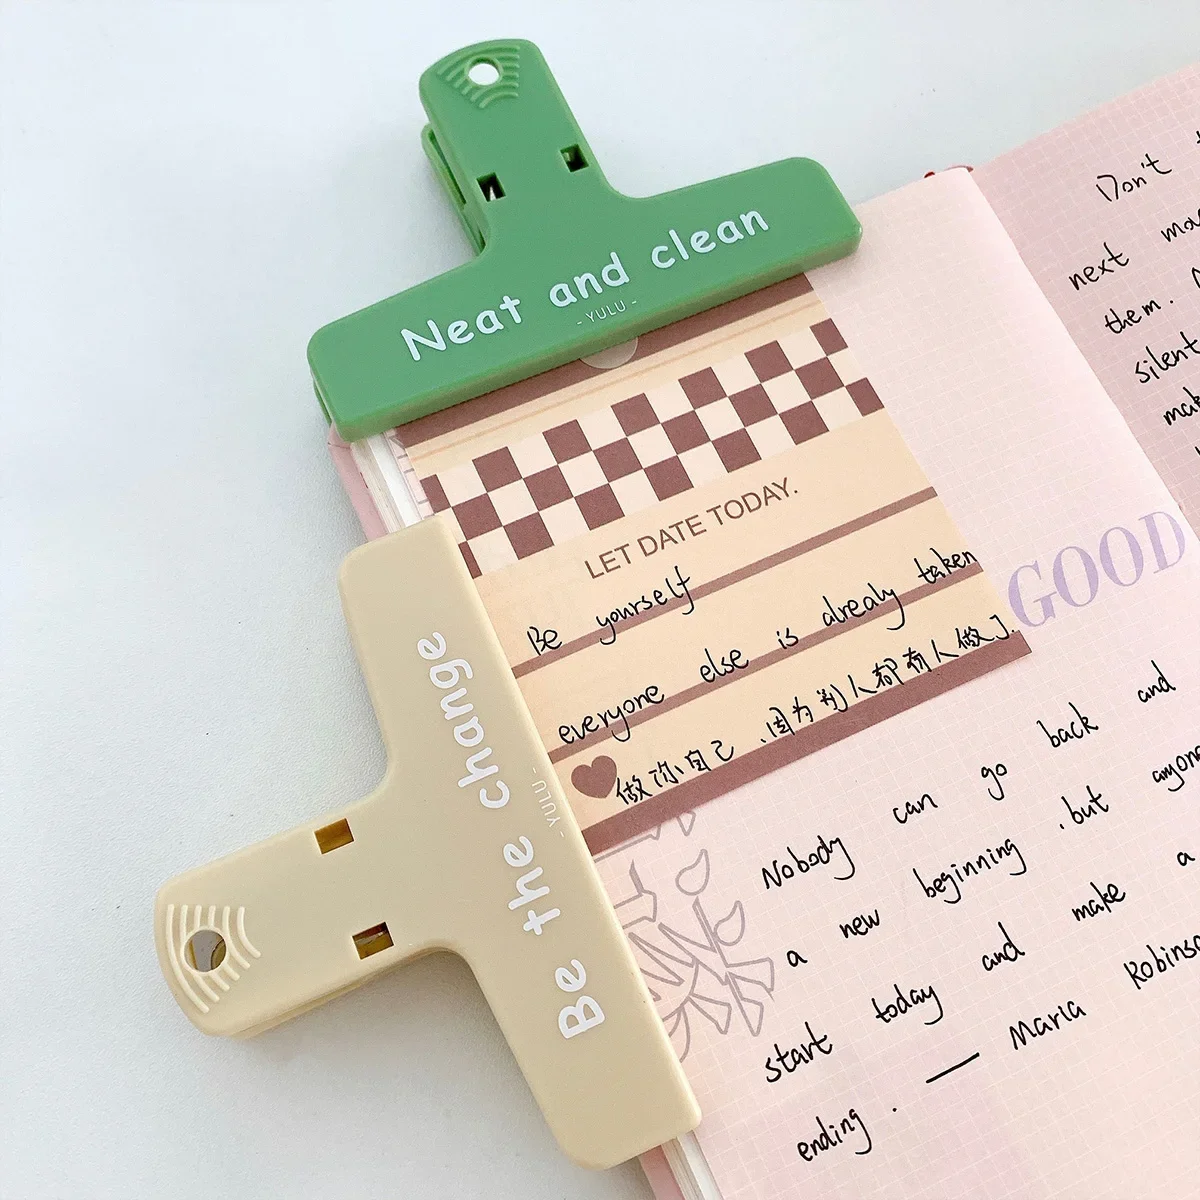 Neat and clean
- YULU -
LET DATE TODAY.
Be yourself
everyone else is alrealy taken
做你自己、因为别人都有人做了.
Be the change
- YULU -
GOOD
Nobody can go back and
a new beginning , but anyone
start today and make a
ending . — Maria Robinso
Don't
next
them.
silent